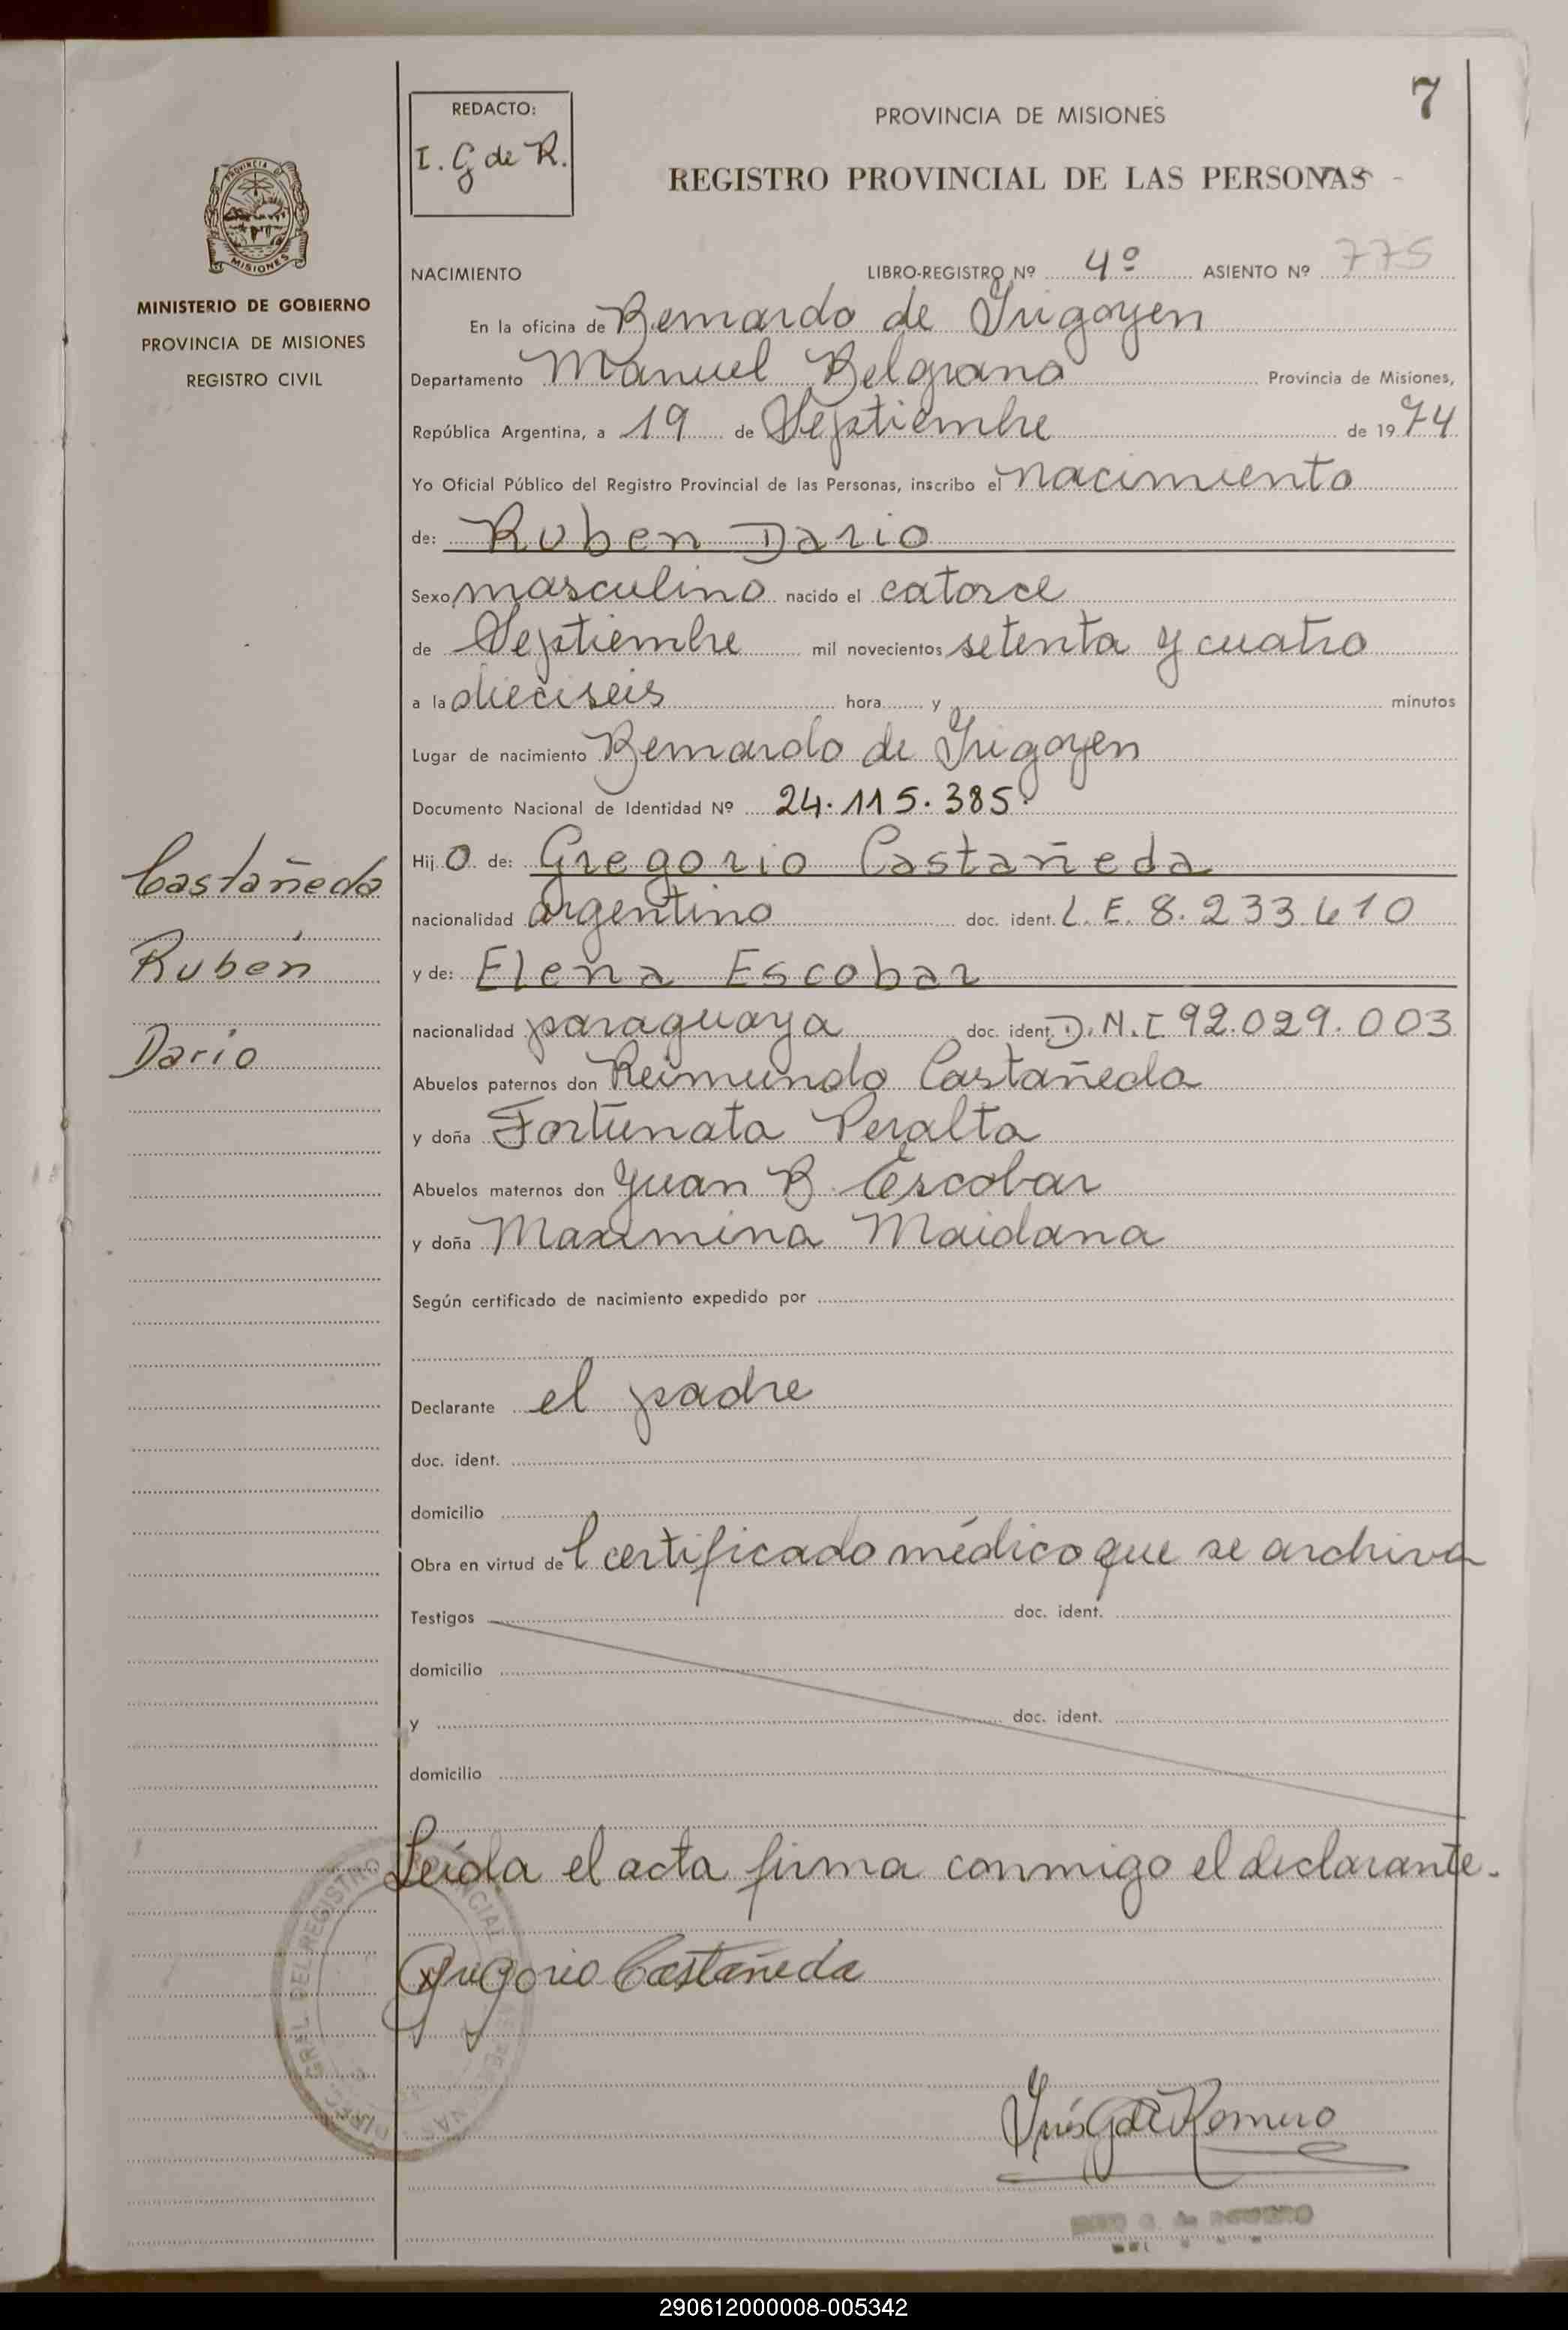 7
REDACTO:
I. G de R.
PROVINCIA DE MISIONES
REGISTRO PROVINCIAL DE LAS PERSONAS
PROVINCIA
MISIONES
MINISTERIO DE GOBIERNO
PROVINCIA DE MISIONES
REGISTRO CIVIL
NACIMIENTO LIBRO-REGISTRO Nº 4º ASIENTO Nº 775
En la oficina de Bernardo de Irigoyen
Departamento Manuel Belgrano Provincia de Misiones,
República Argentina, a 19 de Septiembre de 1974
Yo Oficial Público del Registro Provincial de las Personas, inscribo el nacimiento
de: Ruben Dario
Sexo masculino nacido el catorce
de Septiembre mil novecientos setenta y cuatro
a la dieciseis hora y minutos
Lugar de nacimiento Bernardo de Irigoyen
Documento Nacional de Identidad Nº 24.115.385.
Hijo de: Gregorio Castañeda
nacionalidad argentino doc. ident. L.E. 8.233.610
y de: Elena Escobar
nacionalidad paraguaya doc. ident. D.N.I 92.029.003
Abuelos paternos don Reimundo Castañeda
y doña Fortunata Peralta
Abuelos maternos don Juan B. Escobar
y doña Maximina Maidana
Castañeda
Rubén
Dario
Según certificado de nacimiento expedido por
Declarante el padre
doc. ident.
domicilio
Obra en virtud del certificado médico que se archiva
Testigos doc. ident.
domicilio
y doc. ident.
domicilio
Leída el acta firma conmigo el declarante.
Gregorio Castañeda
Inés G de Romero
290612000008-005342